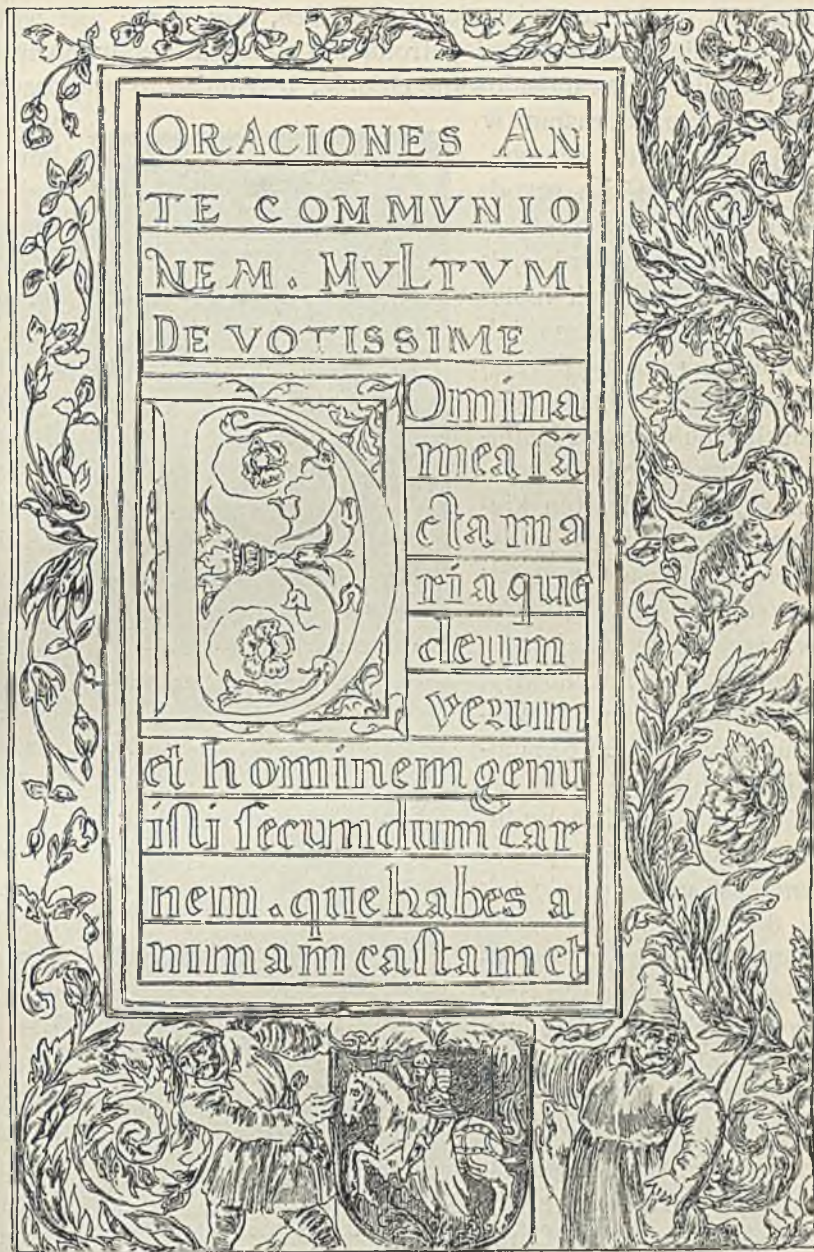 ORACIONES AN
TE COMMVNIO
NEM. MVLTVM
DEVOTISSIME
DOmina
mea sã
cta ma
ria que
deum
verum
et hominem genu
isti secundum car
nem. que habes a
nimam̄ castam et